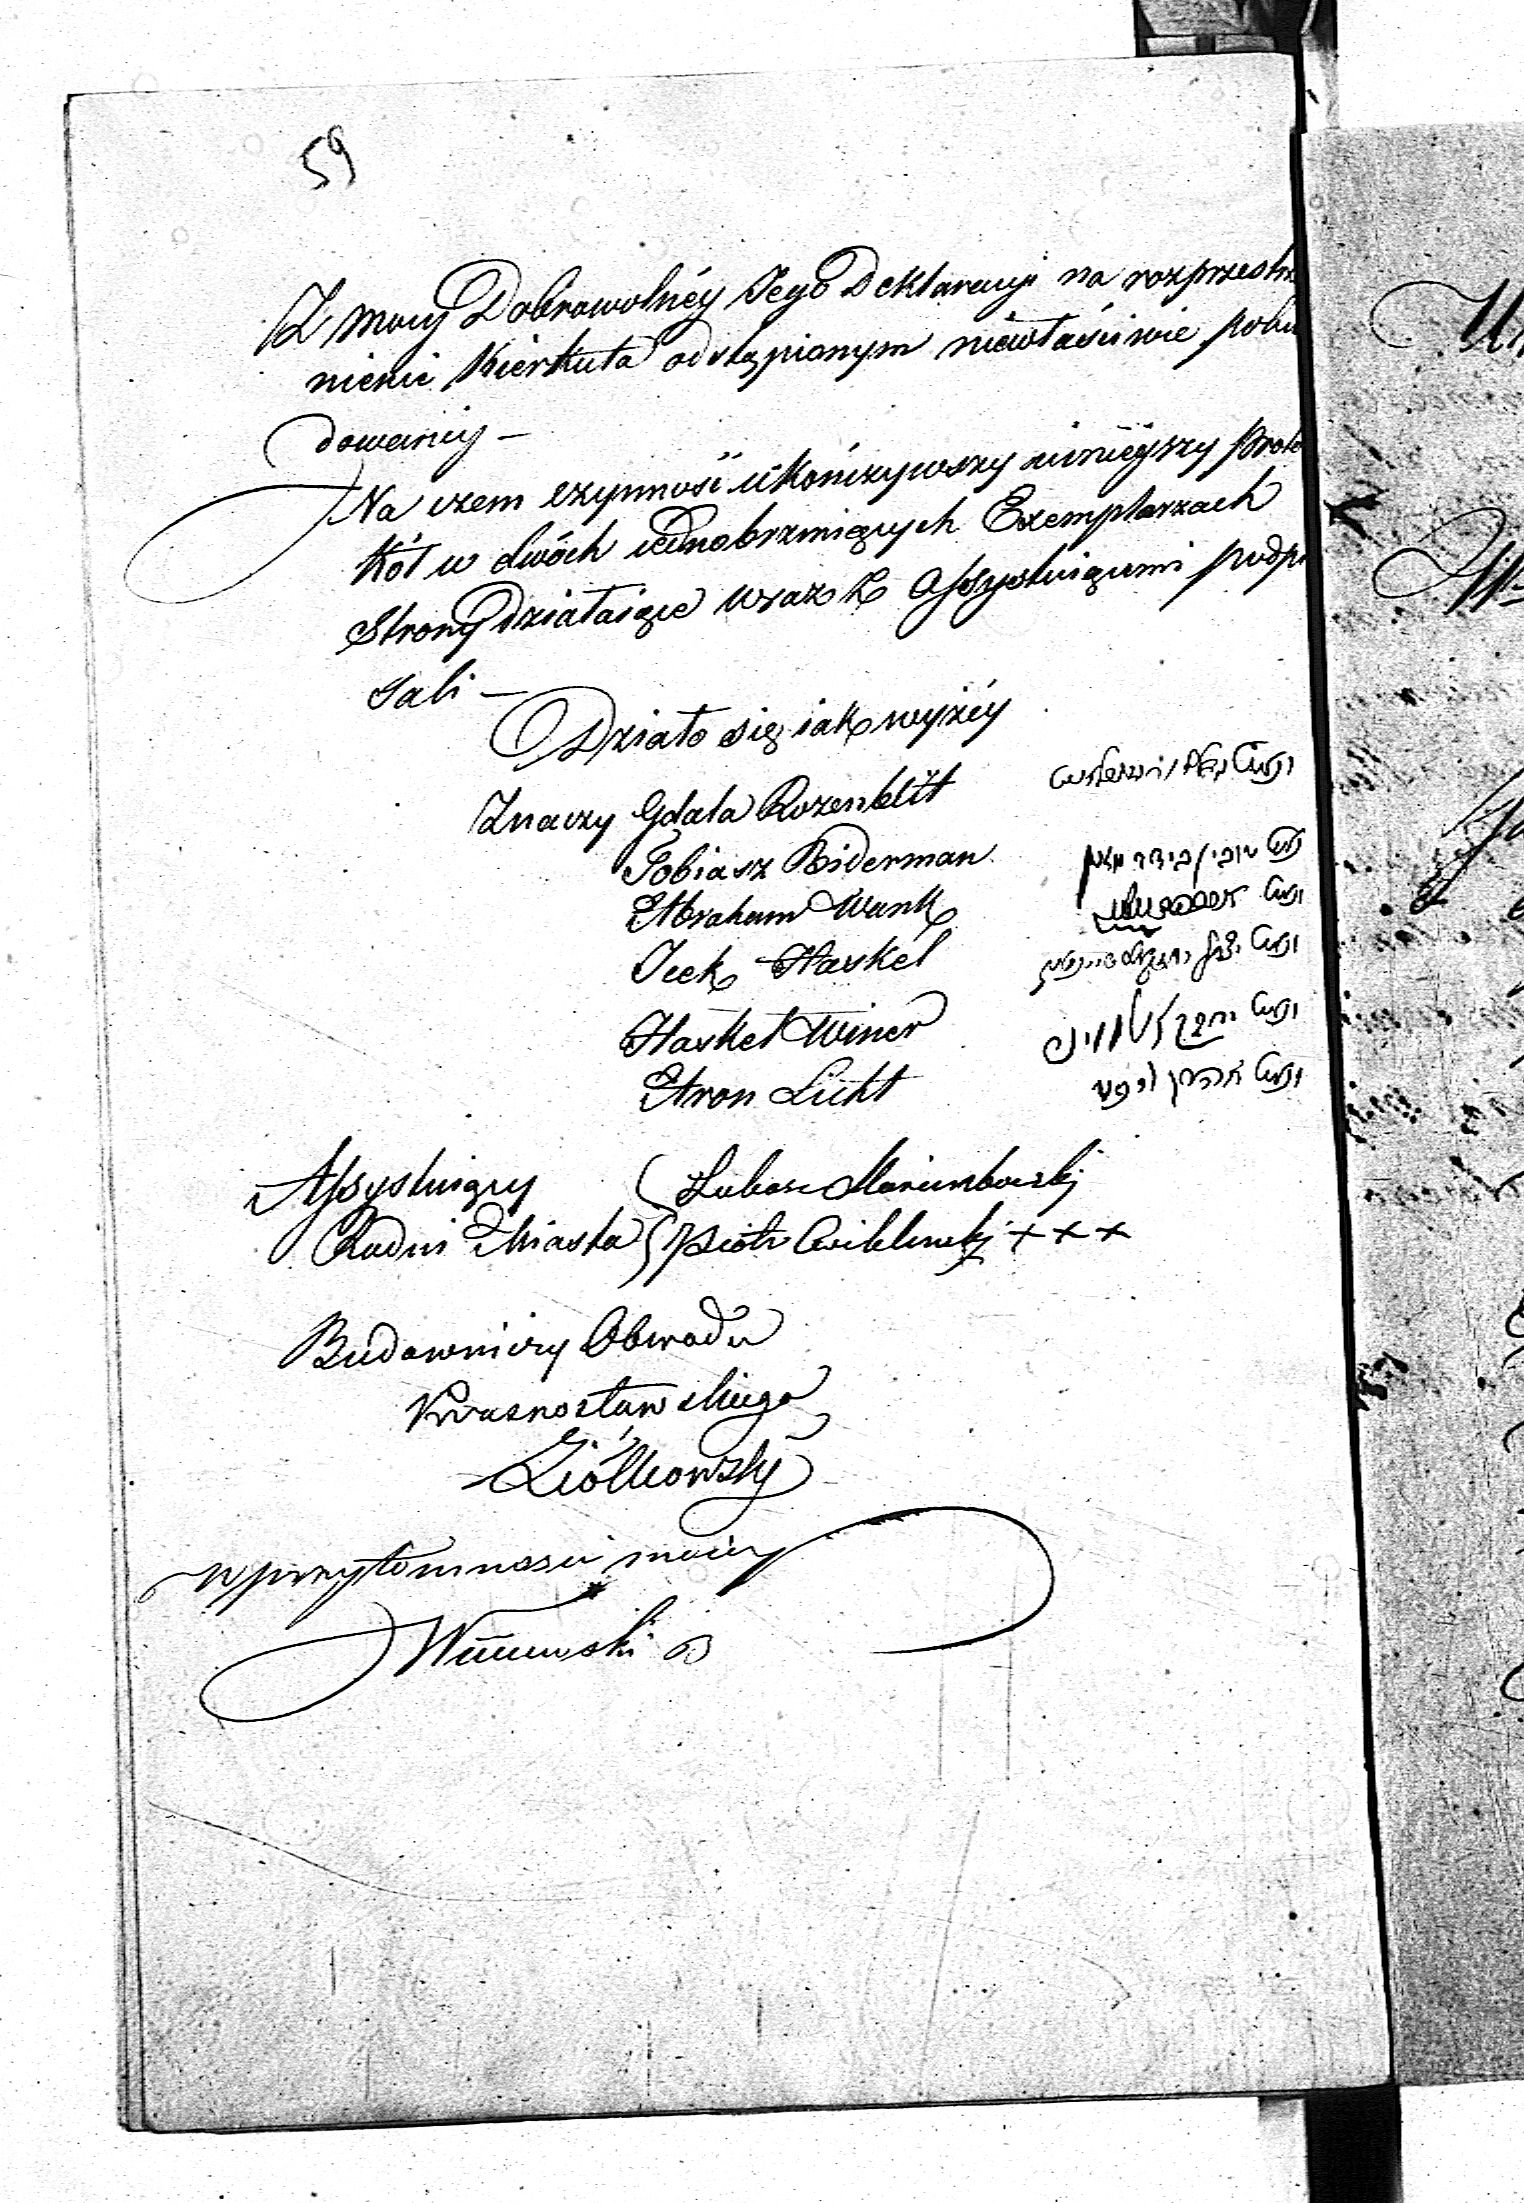 59
Z mocy Dobrowolnéy Jego Deklaracyi na rozprzestrze
nienie Kierkuta odstąpionym niewłaściwie pobu
dowaney –
Na czem czynność ukończywszy ninieyszy Proto
kół w dwóch iednobrzmiących Exemplarzach
Strony działaiące wraz z Assystuiącemi podpi
sali –
Działo się iak wyżéy
Znaczy Gdala Rozenblit
Tobiasz Biderman טובי' בידרמאן
Abraham Wank
Icek Haskel
Haskel Winer
Aron Licht אהרן ליכט
Assystuiący
Radni Miasta
Piotr Cwiklinski + + +
Budowniczy Obwodu
Krasnostawskiego
Ziółkowski
w przytomności moiey